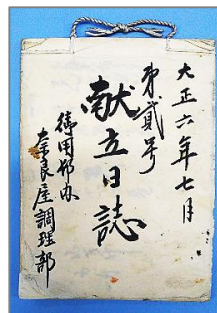 大正六年七月
第貳号
献立日誌
徳用邸内
奈良屋調理部